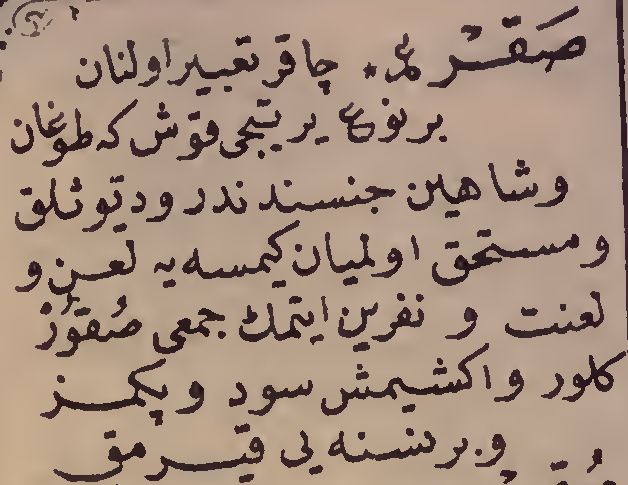 صَقَرْ عم * چاقر تعبير اولنان
بر نوع يرتيجى قوش كه طوغان
وشاهين جنسندندر و ديوثلق
ومستحق اولميان كيمسه يه لعن و
لعنت و نفرين ايتمك جمعى صُقوُرْ
كلور و اكشيمش سود و پكمز
و بر نسنه يى قيرمق